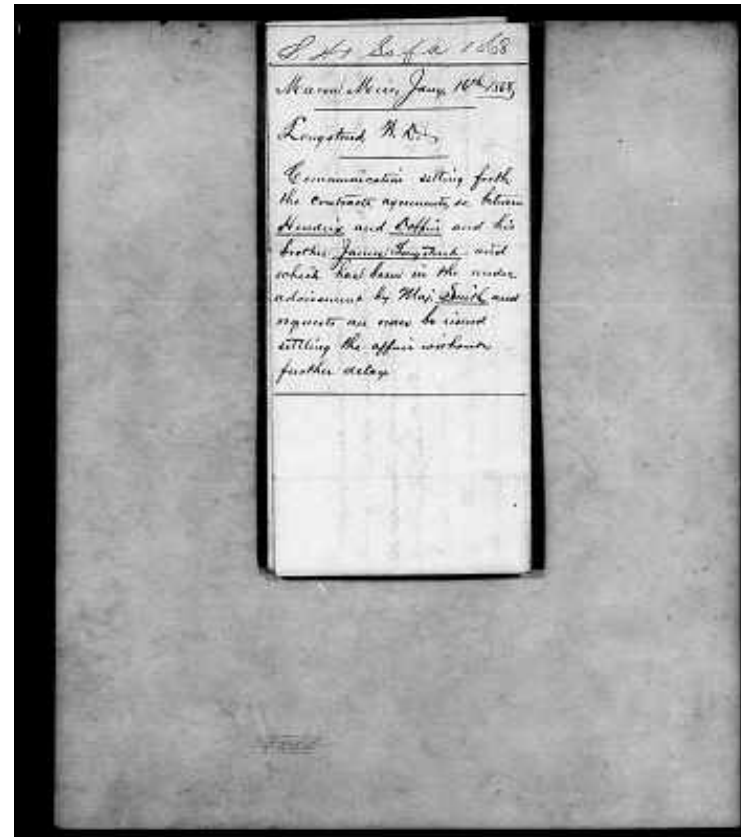 1868
Macon Miss, Jany 16th 1868,
Longstreet,
Communication setting forth
the contracts agreements, &c between
Hendrix and and his
brother James Longstreet and
which has been in the under
advisement by Maj Smith and
requests an order be issued
settling the affair without
further delay